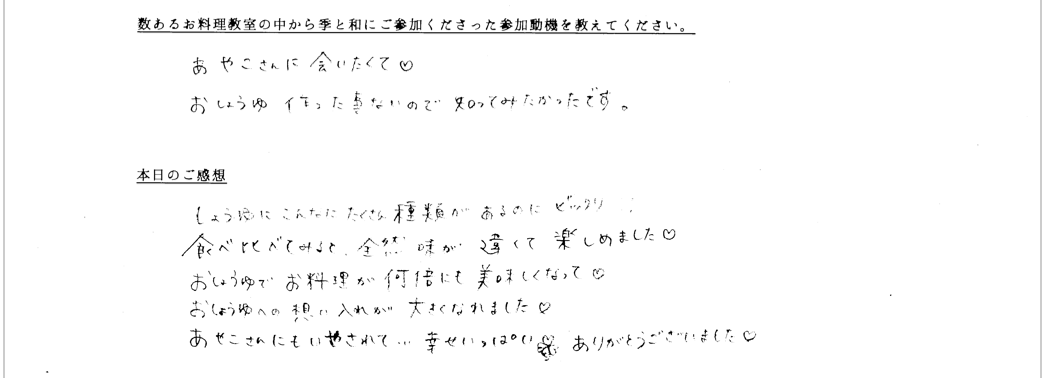 数あるお料理教室の中から季と和にご参加くださった参加動機を教えてください。
あやこさんに会いたくて♡
おしょうゆ作った事ないので知ってみたかったです。
本日のご感想
しょう油にこんなにたくさん種類があるのにビックリ!
食べ比べてみると、全然味が違くて楽しめました♡
おしょうゆでお料理が何倍にも美味しくなって♡
おしょうゆへの想い入れが大きくなれました♡
あやこさんにもいやされて…幸せいっぱい ありがとうございました♡